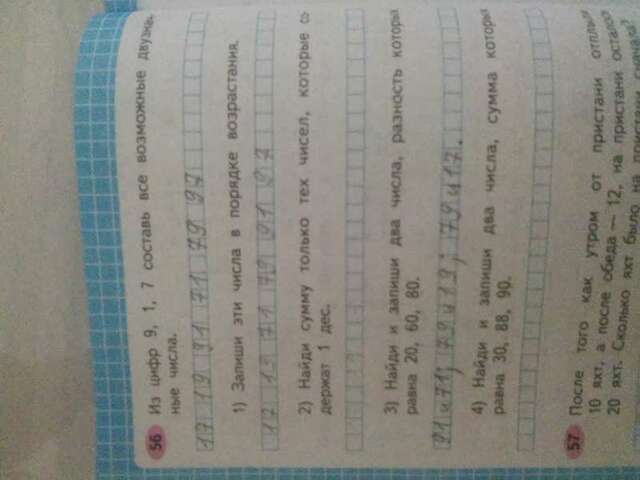 56 Из цифр 9, 1, 7 составь все возможные двузнач
ные числа.
17 19 91 71 79 97
1) Запиши эти числа в порядке возрастания.
17 19 71 79 91 97
2) Найди сумму только тех чисел, которые со
держат 1 дес.
3) Найди и запиши два числа, разность которых
равна 20, 60, 80.
91 и 71; 79 и 19; 79 и 17.
4) Найди и запиши два числа, сумма которых
равна 30, 88, 90.
57 После того как утром от пристани отплыли
10 яхт, а после обеда — 12, на пристани осталось
20 яхт. Сколько яхт было на пристани